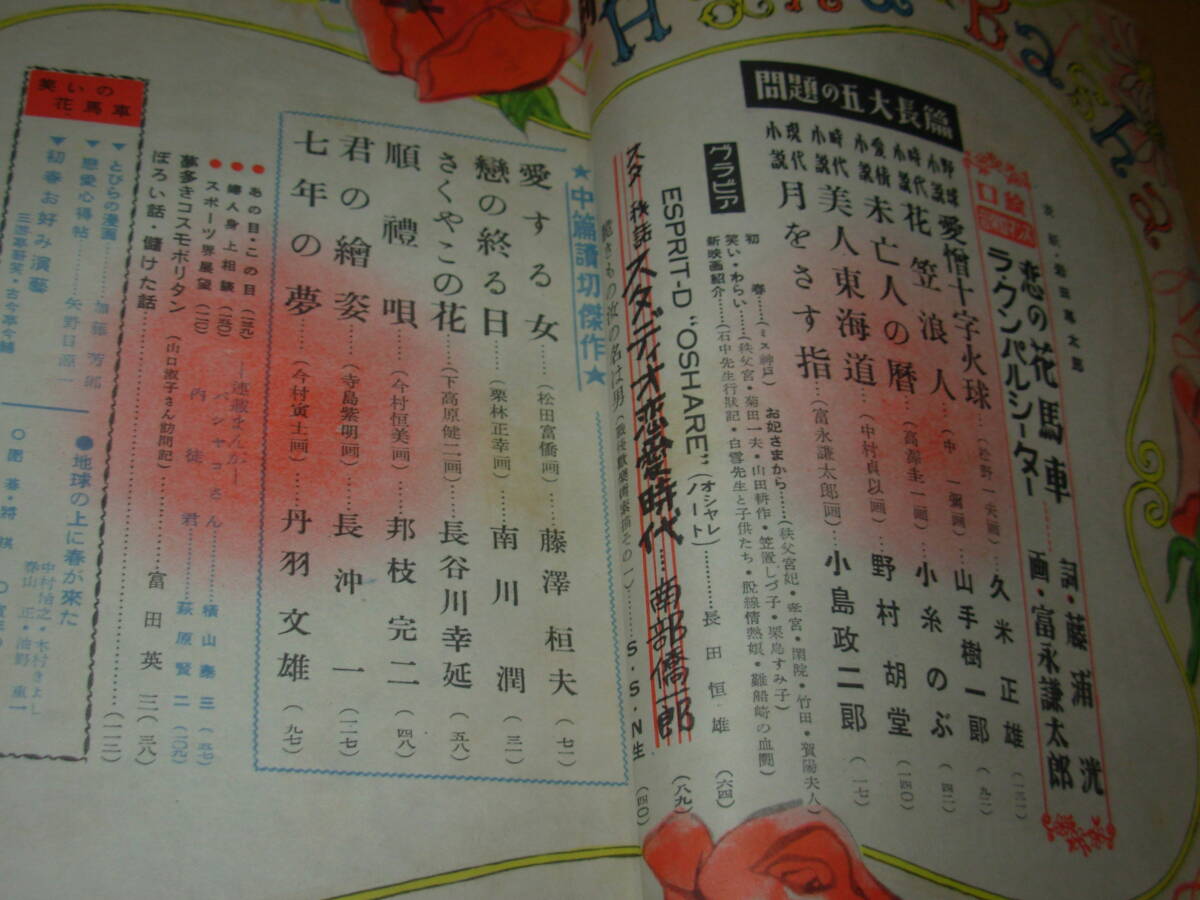 表紙・岩田専太郎
口絵
恋の花馬車 詞・藤浦洸
ラ・クンパルシーター 画・富永謙太郎
問題の五大長篇
愛憎十字火球 (松野一夫画) 久米正雄 (一三一)
時代小説 花笠浪人 (中一彌画) 山手樹一郎 (九二)
愛情小説 未亡人の暦 (高澤圭一画) 小糸のぶ (四二)
時代小説 美人東海道 (中村貞以画) 野村胡堂 (一四〇)
現代小説 月をさす指 (富永謙太郎画) 小島政二郎 (一七)
グラビア
初春 (ミス神戸) お妃さまから (秩父宮妃・李宮・閑院・竹田・賀陽夫人)
笑い・わらい (秩父宮・菊田一夫・山田耕作・笠置しづ子・栗島すみ子)
新映画紹介 (石中先生行狀記・白雪先生と子供たち・脱線情熱娘・難船崎の血鬪)
ESPRIT-D "OSHARE" (オシャレノート) 長田恒雄 (六四)
スタヂオ秘話 スタディオ恋愛時代 南部僑一郎 (八九)
の夜の名は男 S・S・N生 (四〇)
★中篇讀切傑作★
愛する女 (松田富僑画) 藤澤桓夫 (七一)
戀の終る日 (栗林正幸画) 南川潤 (三一)
さくやこの花 (下高原健二画) 長谷川幸延 (五八)
順禮唄 (今村恒美画) 邦枝完二 (四八)
君の繪姿 (寺島紫明画) 長沖一 (一二七)
七年の夢 (今村寅士画) 丹羽文雄 (九七)
●あの目・この目 (三九) ―連載まんが―
●噂人身上相談 (一五〇) パンヤコさん 横山泰三 (一五七)
●スポーツ界展望 (一二〇) 内徒君 萩原賢二 (一〇九)
夢多きコスモポリタン (山口淑子さん訪問記)
ぼろい話・儲けた話 富田英三 (三八)
(一一二)
笑いの花馬車
▼とびらの漫画 加藤芳郎
▼戀愛心得帖 矢野目源一
▼初春お好み演藝
●地球の上に春が來た
○圍碁・將棋